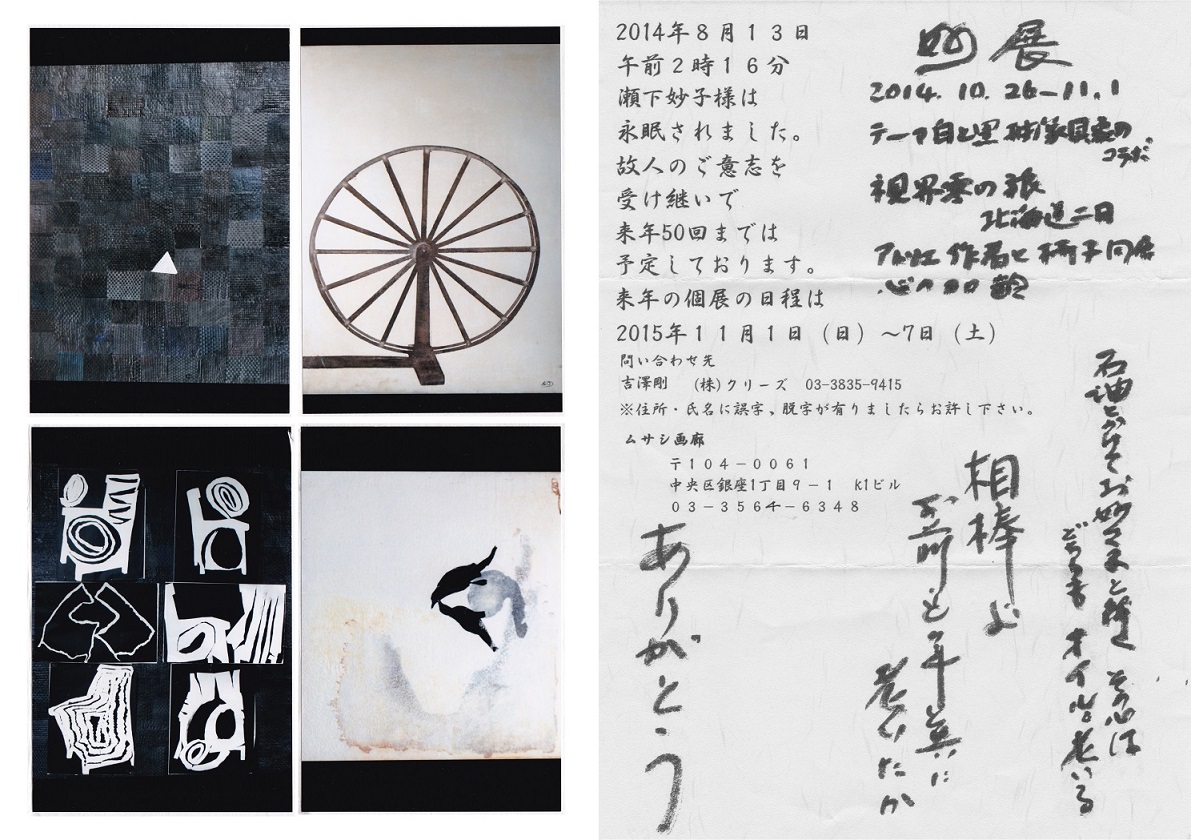 2014年8月13日
午前2時16分
瀬下妙子様は
永眠されました。
故人のご意志を
受け継いで
来年50回までは
予定しております。
来年の個展の日程は
2015年11月1日（日）～7日（土）
問い合わせ先
吉澤剛　(株)クリーズ　03-3835-9415
※住所・氏名に誤字、脱字が有りましたらお許し下さい。
ムサシ画廊
〒104－0061
中央区銀座1丁目9－1　K1ビル
03－3564－6348
妙展
2014. 10. 26-11. 1
テーマ白と黒
コラボ
視界零の旅
北海道二日
アトリエ 作者と
心のコロ
石油とかけてお妙さんと
その心は
どちらも オイル。老いる
相棒よ
お前も年並に
老いたか
ありがとう